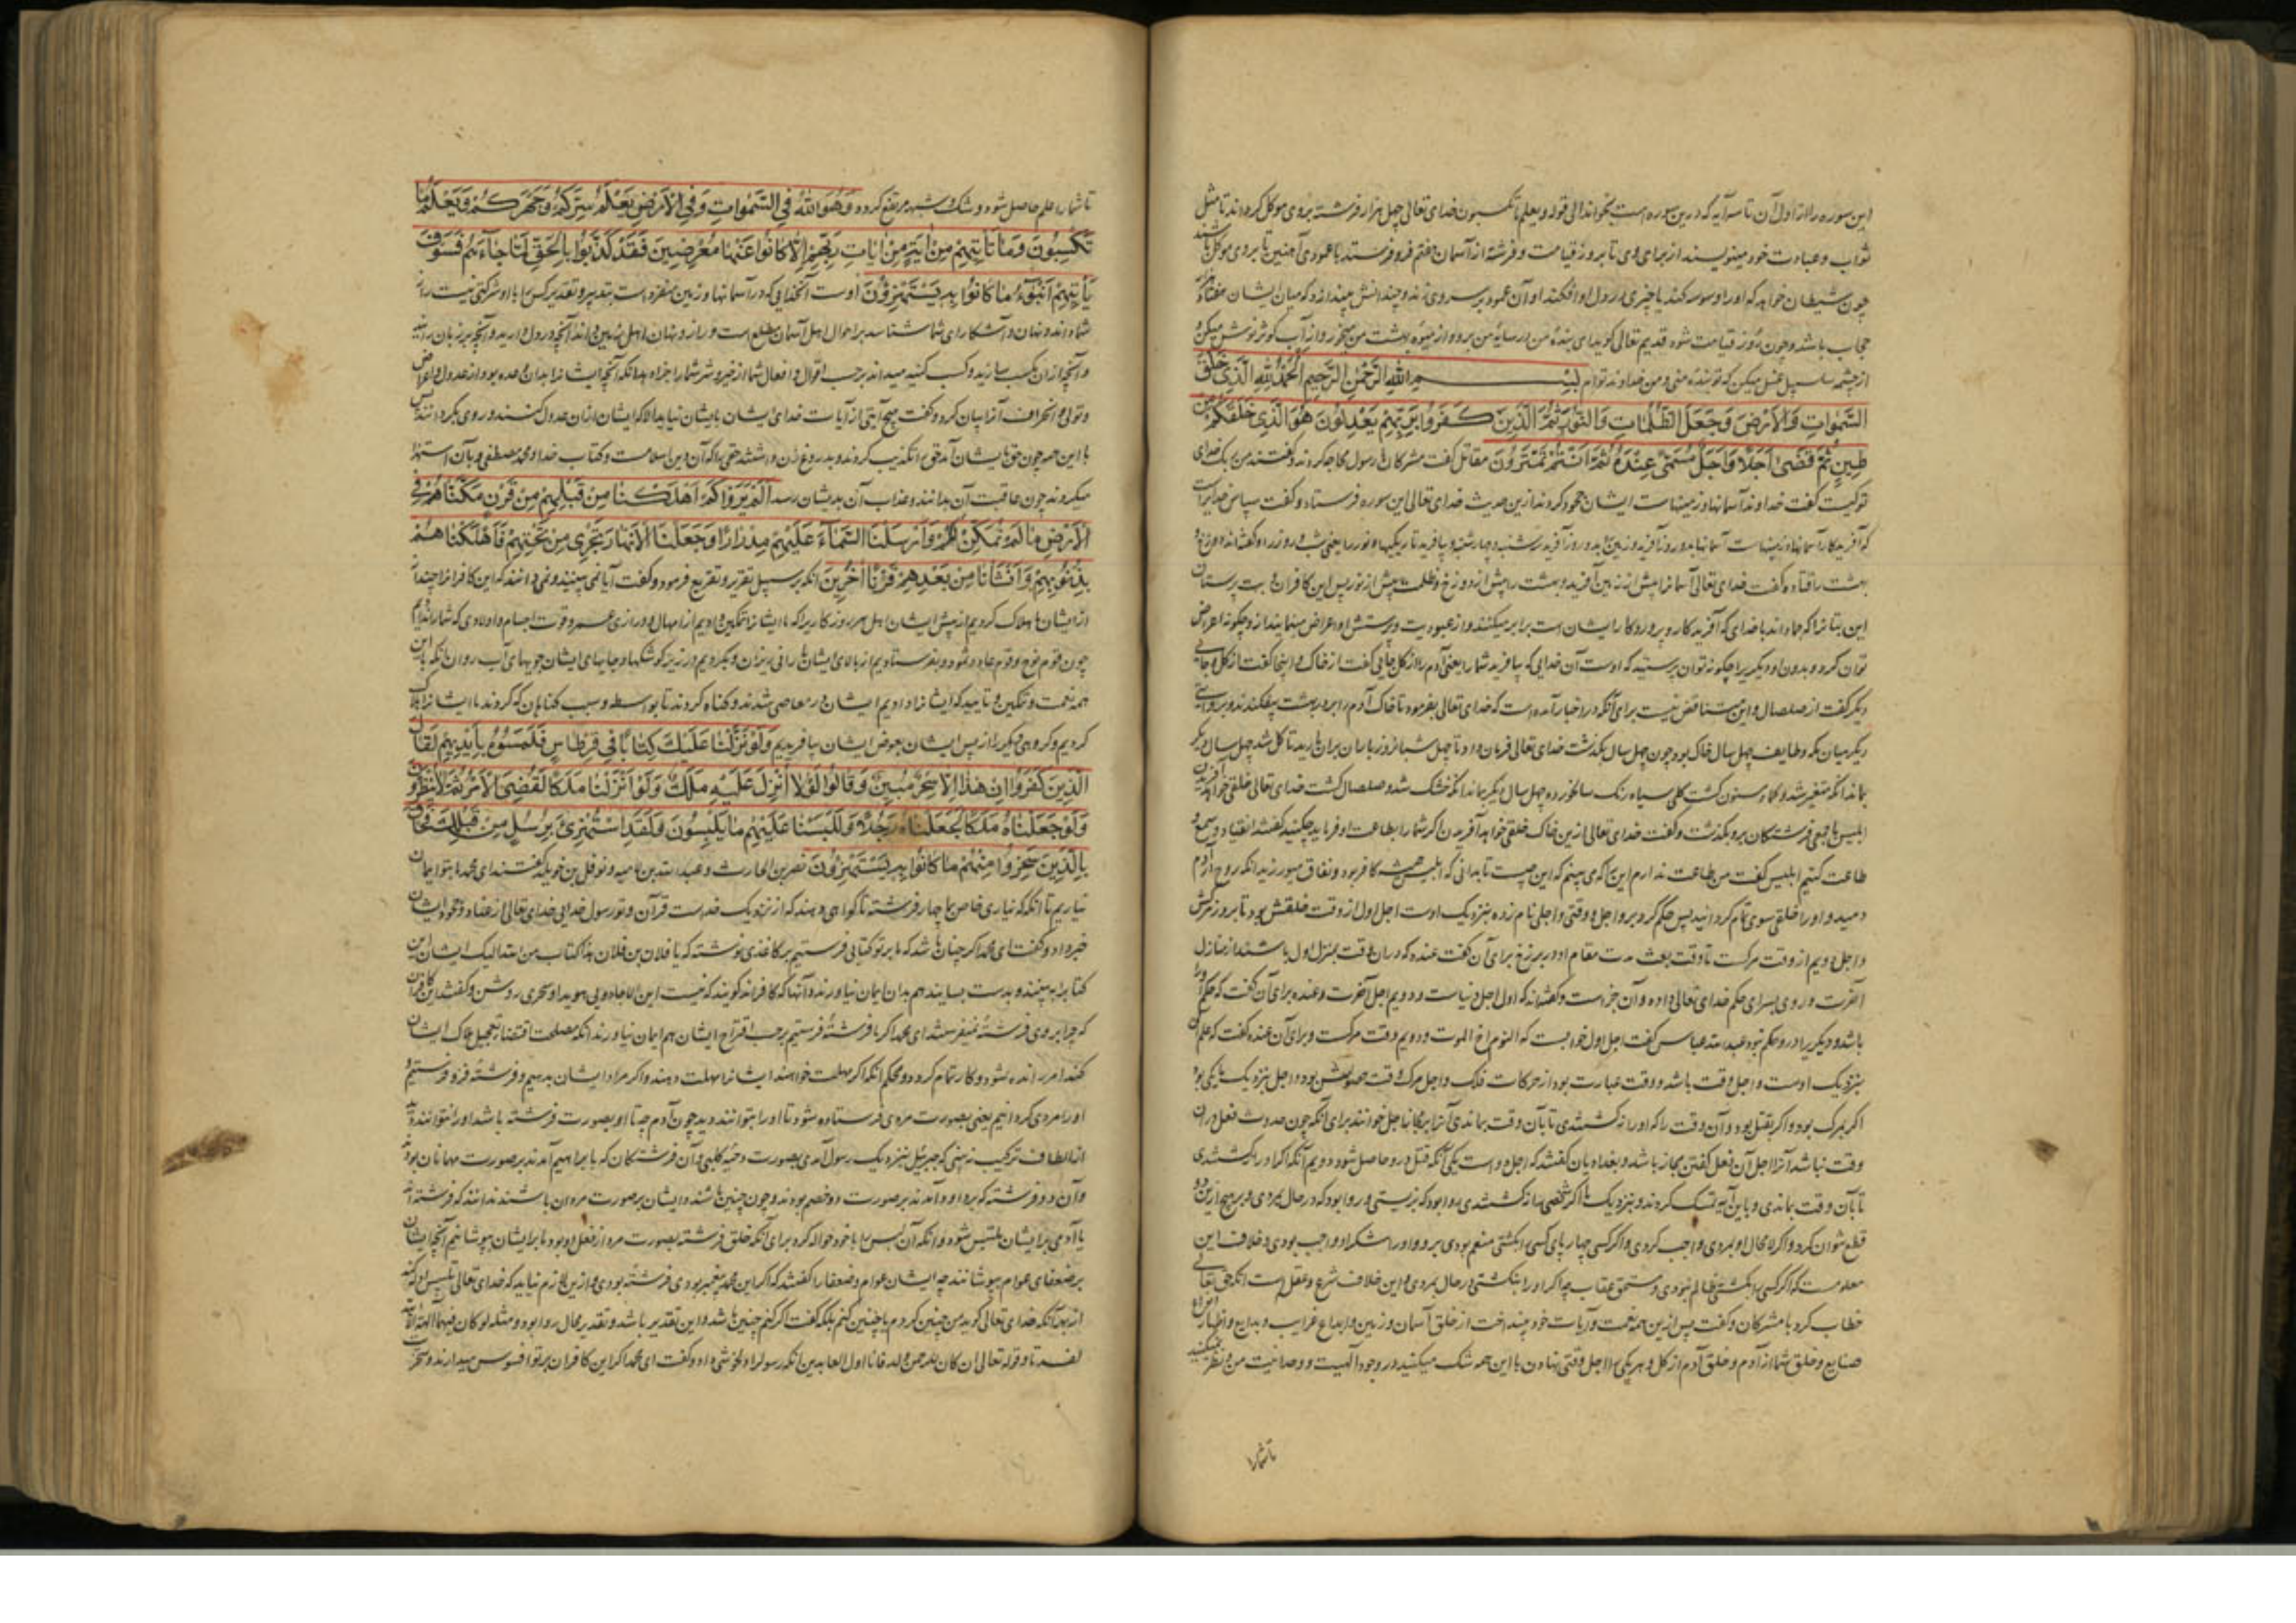 این سوره را از اول آن تا سه آیه که درین سوره است بخواند الی قوله و یعلم ما تکسبون خدای تعالی چهل هزار فرشته بروی موکل کرداند تا مثل
ثواب و عبادت خود مینویسند از برای وی تا بروز قیامت و فرشتهٔ از آسمان هفتم فرو فرستد با عمودی آهنین تا بروی موکل باشد
چون شیطان خواهد که او را وسوسه کند یا چیزی در دل او افکند او آن عمود بر سر وی زند و چندانش بیندازد که میان ایشان هفتاد هزار
حجاب باشد و چون روز قیامت شود قدیم تعالی کوید ای بندهٔ من در سایهٔ من برو و از میوهٔ بهشت من میخور و از آب کوثر نوش میکن و
از چشمه سلسبیل غسل میکن که تو بندهٔ منی و من خداوند توام بسم الله الرحمن الرحیم الحمد لله الذی خلق
السموات والارض وجعل الظلمات والنور ثم الذین کفروا بربهم یعدلون هو الذی خلقکم من
طین ثم قضی اجلا واجل مسمی عنده ثم انتم تمترون مقاتل کفت مشرکان با رسول محاجه کردند و کفتند من بک خدای
تو کیست کفت خداوند آسمانها و زمینهاست ایشان جحود کردند ازین حدیث خدای تعالی این سوره فرستاد و کفت سپاس خدایراست
که آفریدکار آسمانها و زمینهاست آسمانها بدو روز آفرید و زمین بدو روز آفرید سه شنبه و چهار شنبه و بیافرید تاریکیها و نور را یعنی شب و روز را
بهشت را قتاده کفت خدای تعالی آسمانرا پیش از زمین آفرید و بهشت را پیش از دوزخ و ظلمت پیش از نور پس این کافران و بت پرستان
این بتانرا که جماداند با خدای که آفریدکار و پروردکار ایشان است برابر میکنند و از عبودیت و پرستش او اعراض مینمایند
توان کرد و بدون او دیکریرا چکونه توان پرستید که اوست آن خدایی که بیافرید شما را یعنی آدم را از کل جایی کفت از خاک و اینجا کفت از کل و جایی
دیکر کفت از صلصال و این متناقض نیست برای آنکه در اخبار آمده است که خدای تعالی بفرمود تا خاک آدم را بر در بهشت بیفکندند
دیکر میان مکه و طایف چهل سال خاک بود چون چهل سال بکذشت خدای تعالی فرمان داد تا چهل شبانروز باران بران بارید تا کل شد چهل سال دیکر
بماند انکه متغیر شد و حماء مسنون کشت کلی سیاه رنک سالخورده چهل سال دیکر بماند انکه خشک شد و صلصال کشت خدای تعالی خلقی خواهد آفریدن
ابلیس با جمعی فرشتکان برو بکذشت و کفت خدای تعالی ازین خاک خلقی خواهد آفرید اکر شما را بطاعت او فرماید چکنید کفتند انقیاد و سمع و
طاعت کنیم ابلیس کفت من طاعت ندارم این را که می بینم که این چیست تا بدانی که ابلیس همیشه کافر بود و نفاق میورزید انکه روح در آدم
دمید و او را خلقی سوی تمام کردانید پس حکم کرد بر و اجل و وقتی و اجلی نام زده بنزدیک اوست اجل اول از وقت خلقش بود تا بروز مرکش
و اجل دویم از وقت مرکست تا وقت بعث مدت مقام او در برزخ برای آن کفت عنده که دران وقت بمنزل اول باشند از منازل
آخرت
باشد و دیکریرا درو حکم نبود عبدالله عباس کفت اجل اول خوابست که النوم اخ الموت و دویم وقت مرکست و برای آن عنده کفت که علم آن
بنزدیک اوست و اجل وقت باشد و وقت عبارت بود از حرکات فلک و اجل مرک وقت
اکر بمرک بود و اکر بقتل بود و آن وقت را که او را نکشتندی تا بآن وقت بماندی آنرا اجل نخوانند برای آنکه چون حدوث فعل دران
وقت نباشد آنرا اجل آن فعل کفتن مجاز باشد و بغدادیان کفتند که اجل دو است یکی آنکه قتل درو حاصل شود دویم آنکه اکر او را نکشتندی
تا بآن وقت بماندی و باین آیه تمسک کردند و بنزدیک ما اکر شخصی را نکشتندی روا بودی که بزیستی و روا بود که در حال بمردی و بر هیچ ازین دو
قطع نتوان کرد
معلومست که اکر کسی را بکشتی ظالم بودی و مستحق عقاب چه اکر او را نکشتی در حال بمردی و این خلاف شرع و عقل است انکه حق تعالی
خطاب کرد با مشرکان و کفت پس ازین همه نعمت و آیات خود چند اخت از خلق آسمان و زمین و ابداع غرایب و بدایع و اظهار
صنایع و خلق شما از آدم و خلق آدم از کل و هر یکی را اجل وقتی نهادن با این همه شک میکنید در وجود آلهیت و وحدانیت من و نظر نمیکنید
تا شما را
تا شما را علم حاصل شود و شک و شبهه مرتفع کردد وهو الله فی السموات وفی الارض یعلم سرکم وجهرکم ویعلم ما
تکسبون وما تاتیهم من ایة من ایات ربهم الا کانوا عنها معرضین فقد کذبوا بالحق لما جاءهم فسوف
یاتیهم انبؤا ما کانوا به یستهزؤن اوست آنخدایی که در آسمانها و زمین منفرد است بتدبیر و تقدیر کس را با او شرکتی نیست راز
شما داند و نهان و آشکارای شما شناسد بر احوال اهل آسمان مطلع است و راز و نهان اهل زمین داند آنچه در دل دارید و آنچه بر زبان رانید
و آنچه ازان بکسب سازید و کسب کنید میداند بر حسب اقوال و افعال شما از خیر و شر شما را جزا دهد
و تولی و انحراف آنرا بیان کرد و کفت هیچ آیتی از آیات خدای ایشان بایشان نیاید الا که ایشان ازان عدول کنند و روی بکردانند پس
با این همه چون حق بایشان آمد حق را تکذیب کردند و بدروغ زن داشتند حقی را که آن دین اسلامست و کتاب خدا و محمد مصطفی و بآن استهزا
میکردند چون عاقبت آن بدانند و عذاب آن بدیشان رسد الم یروا کم اهلکنا من قبلهم من قرن مکناهم فی
الارض ما لم نمکن لکم وارسلنا السماء علیهم مدرارا وجعلنا الانهار تجری من تحتهم فاهلکناهم
بذنوبهم وانشانا من بعدهم قرنا اخرین انکه بر سبیل تقریر و تقریع فرمود و کفت آیا نمی بینند و نمی دانند که این کافرانرا چند
از ایشان ما هلاک کردیم از پیش ایشان اهل هر روزکاریرا که ما ایشانرا تمکین دادیم از امهال و درازی عمر و قوت اجسام و اولادی که شما را ندادیم
چون قوم نوح و قوم عاد و ثمود و بفرستادیم از بالای ایشان بارانی ریزان و بکردیم در زیر کوشکها و جایهای ایشان جویهای آب روان با این
همه نعمت و تمکین و تایید که ایشانرا دادیم ایشان در معاصی شدند و کناه کردند تا بواسطه و سبب کناهان که کردند ما ایشانرا هلاک
کردیم و کروهی دیکر را از پس ایشان بعوض ایشان بیافریدیم ولو نزلنا علیک کتابا فی قرطاس فلمسوه بایدیهم لقال
الذین کفروا ان هذا الا سحر مبین وقالوا لولا انزل علیه ملک ولو انزلنا ملکا لقضی الامر ثم لا ینظرون
ولو جعلناه ملکا لجعلناه رجلا وللبسنا علیهم ما یلبسون ولقد استهزئ برسل من قبلک فحاق
بالذین سخروا منهم ما کانوا به یستهزؤن نضر بن الحارث و عبدالله بن امیه و نوفل بن خویلد کفتند ای محمد ما بتو ایمان
نیاریم تا انکه که نیاری خاص ما چهار فرشته تا کواهی دهند که از نزدیک خداست قرآن و تو رسول خدایی خدای تعالی از عناد و جحود ایشان
خبر داد و کفت ای محمد اکر چنان باشد که ما بر تو کتابی فرستیم بر کاغذی نوشته که یا فلان بن فلان هذا کتاب من الله الیک ایشان این
کتابرا به بینند و بدست بسایند هم بدان ایمان نیاورند و آنها که کافراند کویند که نیست این الا جادویی هویدا و سحری روشن و کفتند این کافران
که چرا بر وی فرشتهٔ نمیفرستند ای محمد اکر ما فرشتهٔ فرستیم بر حسب اقتراح ایشان هم ایمان نیاورند انکه مصلحت اقتضاء تعجیل هلاک ایشان
کند امر رانده شود و کار تمام کردد و محکم انکه اکر مهلت خواهند ایشانرا مهلت ندهند و اکر مراد ایشان بدهیم و فرشتهٔ فرو فرستیم
او را مردی کردانیم یعنی بصورت مردی فرستاده شود تا او را بتوانند دید چون آدم چه تا او بصورت فرشته باشد او را نتوانند دید
که جبرئیل بنزدیک رسول آمدی بصورت دحیهٔ کلبی و آن فرشتکان که با ابراهیم آمدند بر صورت مهمانان بودند
و آن دو فرشته که بر داود آمدند بر صورت دو خصم بودند و چون چنین باشد و ایشان بر صورت مردان باشند ندانند که فرشته اند
یا آدمی بر ایشان ملتبس شود و انکه آن لبس را با خود حواله کرد برای آنکه خلق فرشته بصورت مرد از فعل او بود ما بر ایشان بپوشانیم آنچه ایشان
بر ضعفای عوام بپوشانند چه ایشان عوام و ضعفا را کفتند که اکر این محمد پیغمبر بودی فرشته بودی و ازین لازم نیاید که خدای تعالی تلبیس ادله کند
از بهر آنکه خدای تعالی کوید من چنین کردم یا چنین کنم بلکه کفت اکر کنم چنین باشد و این تقدیر باشد و تقدیر محال روا بود و مثله لو کان فیهما الهة الا الله
لفسدتا و قوله تعالی ان کان للرحمن ولد فانا اول العابدین انکه رسول را دلخوشی داد و کفت ای محمد اکر این کافران بر تو افسوس میدارند و سخر